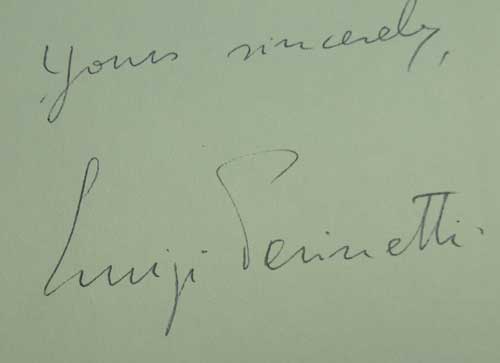 Yours sincerely,
Luigi Perinetti